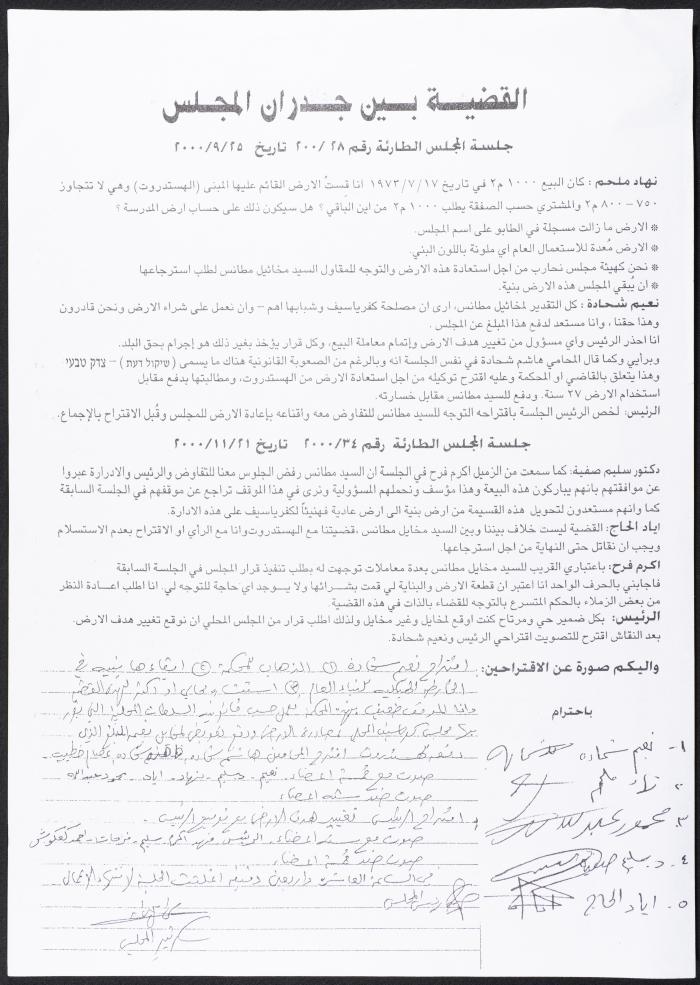 القضية بين جدران المجلس
جلسة المجلس الطارئة رقم ٢٠٠/٢٨ تاريخ ٢٠٠٠/٩/٢٥
نهاد ملحم : كان البيع ١٠٠٠ م٢ في تاريخ ١٩٧٣/٧/١٧ انا قستُ الارض القائم عليها المبنى (الهستدروت) وهي لا تتجاوز
٧٥٠ – ٨٠٠ م٢ والمشتري حسب الصفقة يطلب ١٠٠٠ م٢ من اين الباقي ؟ هل سيكون ذلك على حساب ارض المدرسة ؟
* الارض ما زالت مسجلة في الطابو على اسم المجلس.
* الارض مُعدة للاستعمال العام اي ملونة باللون البني.
* نحن كهيئة مجلس نحارب من اجل استعادة هذه الارض والتوجه للمقاول السيد مخائيل مطانس لطلب استرجاعها
* ان يُبقي المجلس هذه الارض بنية.
نعيم شحادة : كل التقدير لمخائيل مطانس، ارى ان مصلحة كفرياسيف وشبابها اهم – وان نعمل على شراء الارض ونحن قادرون
وهذا حقنا ، وانا مستعد لدفع هذا المبلغ عن المجلس .
انا احذر الرئيس واي مسؤول من تغيير هدف الارض وإتمام معاملة البيع، وكل قرار يؤخذ بغير ذلك هو إجرام بحق البلد.
وبرأيي وكما قال المحامي هاشم شحادة في نفس الجلسة انه وبالرغم من الصعوبة القانونية هناك ما يسمى (שיקול דעת) – צדק טבעי
وهذا يتعلق بالقاضي او المحكمة وعليه اقترح توكيله من اجل استعادة الارض من الهستدروت، ومطالبتها بدفع مقابل
استخدام الارض ٢٧ سنة. ودفع للسيد مطانس مقابل خسارته.
الرئيس: لخص الرئيس الجلسة باقتراحه التوجه للسيد مطانس للتفاوض معه واقناعه بإعادة الارض للمجلس وقُبل الاقتراح بالإجماع.
جلسة المجلس الطارئة رقم ٢٠٠٠/٣٤ تاريخ ٢٠٠٠/١١/٢١
دكتور سليم صفية: كما سمعت من الزميل اكرم فرح في الجلسة ان السيد مطانس رفض الجلوس معنا للتفاوض والرئيس والادرارة عبروا
عن موافقتهم بانهم يباركون هذه البيعة وهذا مؤسف ونحملهم المسؤولية ونرى في هذا الموقف تراجع عن موقفهم في الجلسة السابقة
كما وانهم مستعدون لتحويل هذه القسيمة من ارض بنية الى ارض عادية فهنيئاً لكفرياسيف على هذه الادارة.
اياد الحاج: القضية ليست خلاف بيننا وبين السيد مخايل مطانس ،قضيتنا مع الهستدروت وانا مع الرأي او الاقتراح بعدم الاستسلام
ويجب ان نقاتل حتى النهاية من اجل استرجاعها.
اكرم فرح: باعتباري القريب للسيد مخايل مطانس بعدة معاملات توجهت له بطلب تنفيذ قرار المجلس في الجلسة السابقة
فاجابني بالحرف الواحد انا اعتبر ان قطعة الارض والبناية لي قمت بشرائها ولا يوجد اي حاجة للتوجه لي. انا اطلب اعادة النظر
من بعض الزملاء بالحكم المتسرع بالتوجه للقضاء بالذات في هذه القضية.
الرئيس: بكل ضمير حي ومرتاح كنت اوقع لمخايل وغير مخايل ولذلك اطلب قرار من المجلس المحلي ان نوقع تغيير هدف الارض.
بعد النقاش اقترح للتصويت اقتراحي الرئيس ونعيم شحادة.
واليكم صورة عن الاقتراحين:
اقتراح نعيم شحادة ① الذهاب للمحكمة ② ابقاءها بنية في
الخارطة الهيكلية للبناء العام ③
باحترام
١- نعيم شحادة
صوت مع خمسة اعضاء. نعيم - د. سليم - نهاد - اياد - محمود عبدالله
صوت ضد ستة اعضاء
٢- نهاد ملحم
اقتراح الرئيس تغيير هدف الارض
٣- محمود عبدالله
صوت مع ستة اعضاء. الرئيس
صوت ضد خمسة اعضاء
٤- د. سليم صفية
٥- اياد الحاج
رئيس المجلس
المجلس